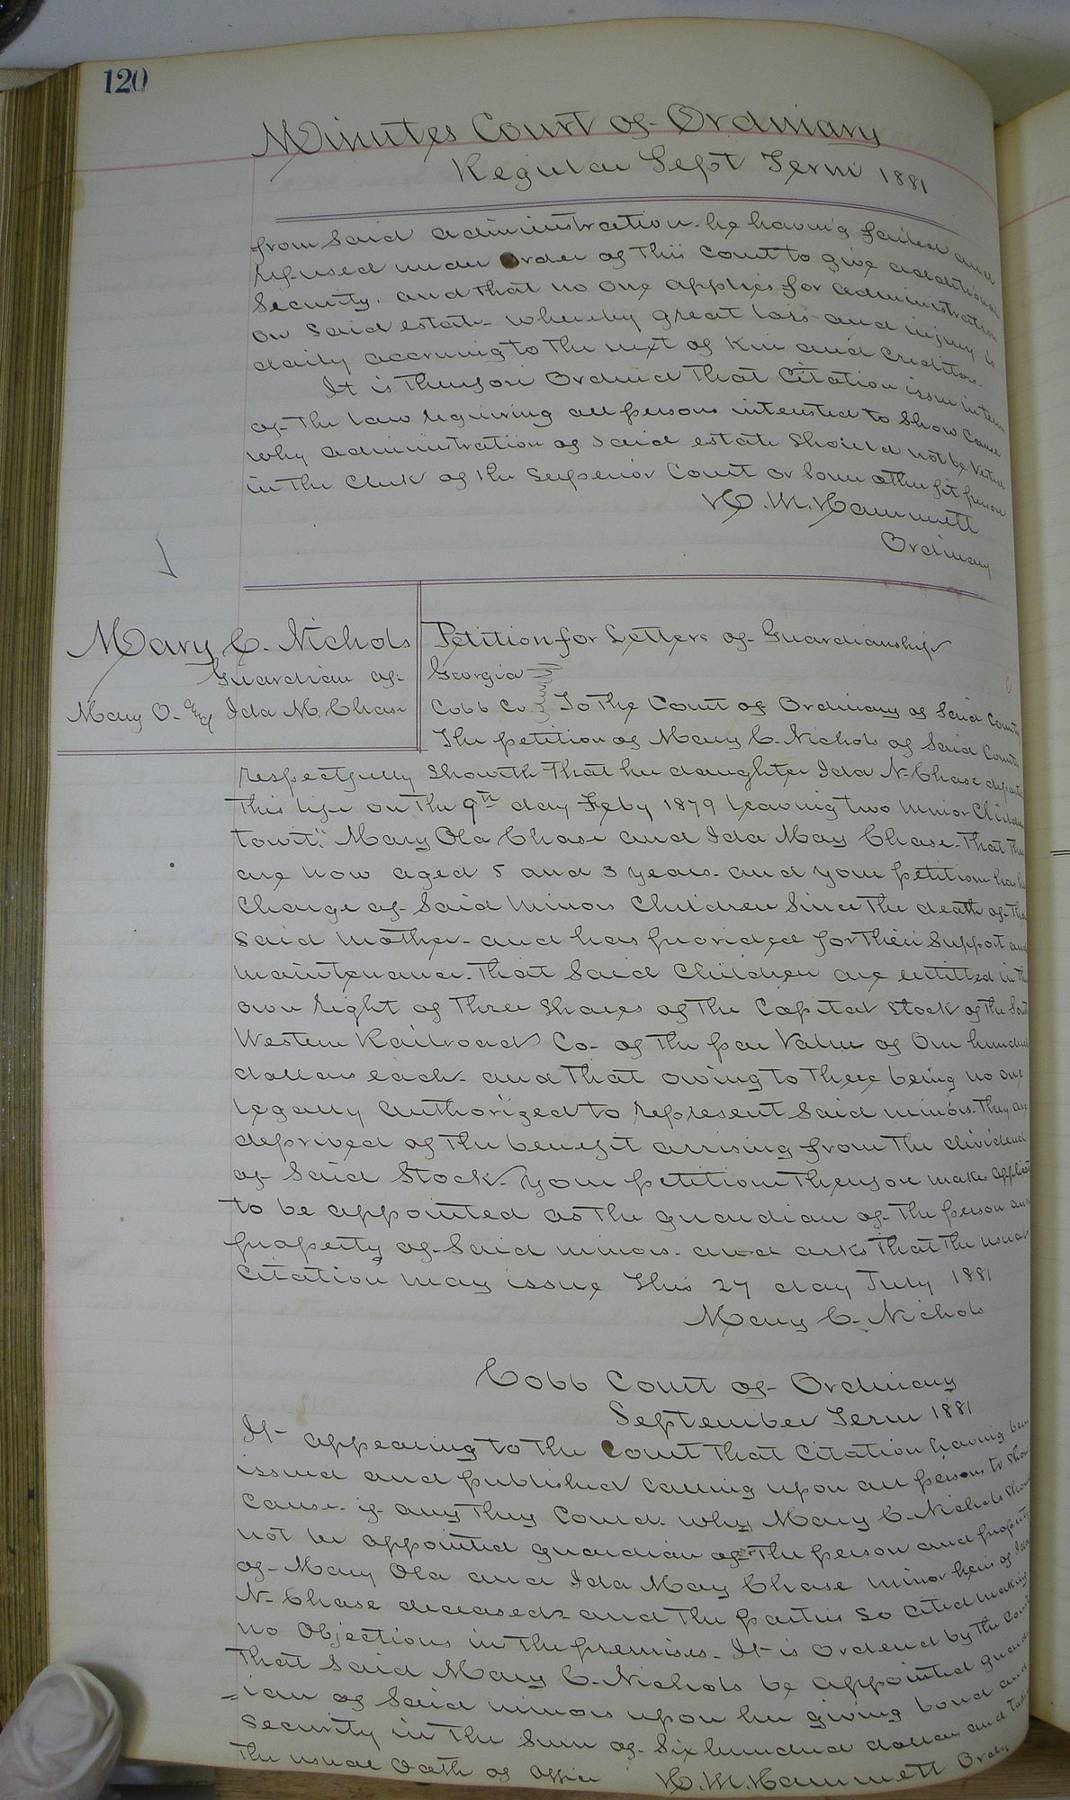 120
Minutes Court of Ordinary
Regular Sept Term 1881
from Said administration. he having failed and
refused under Order of This Court to give additional
Security. and that no one applies for administration
on said estate whereby great loss and injury is
daily accruing to The next of Kin and Creditors.
It is Therefore Ordered That Citation issue in terms
of The law requiring all persons interested to Show Cause
why administration of said estate should not be vested
in The Clerk of the Superior Court or Some other fit person
H. M. Hammett
Ordinary
Mary C. Nichols
Guardian of
Mary O. & Ida M. Chase
Petition for Letters of Guardianship
Georgia
Cobb Co. To The Court of Ordinary of Said County
The petition of Mary C. Nichols of Said County
respectfully Showeth That her daughter Ida N. Chase departed
This life on The 9th day Feby 1879 leaving two minor Children
towit: Mary Ola Chase and Ida May Chase. That They
are now aged 5 and 3 years. and your petitioner has had
Charge of Said minor Children Since The death of Their
Said mother. and has provided for Their Support and
maintenance. That Said Children are entitled in Their
own right of Three Shares of The Capital Stock of The South
Western Railroad Co. of The par Value of One hundred
dollars each. and That owing to There being no one
legally authorized to represent Said minors. They are
deprived of The benefit arrising from The dividend
of Said Stock. Your petitioner Therefore makes application
to be appointed as The guardian of The person and
property of Said minors. and asks That The usual
Citation may issue This 27 day July 1881
Mary C. Nichols
Cobb Court of Ordinary
September Term 1881
It appearing to The Court That Citation having been
issued and published Calling upon all persons to Show
Cause if any They Could. why Mary C. Nichols Should
not be appointed guardian of The person and property
of Mary Ola and Ida May Chase minor heirs of Ida
N. Chase deceased and The parties So Cited making
no Objections in The premises. It is Ordered by The Court
That Said Mary C. Nichols be appointed guard
=ian of Said minors upon her giving bond and
Security in The Sum of Six hundred dollars and taking
The usual Oath of Office H. M. Hammett Ordy